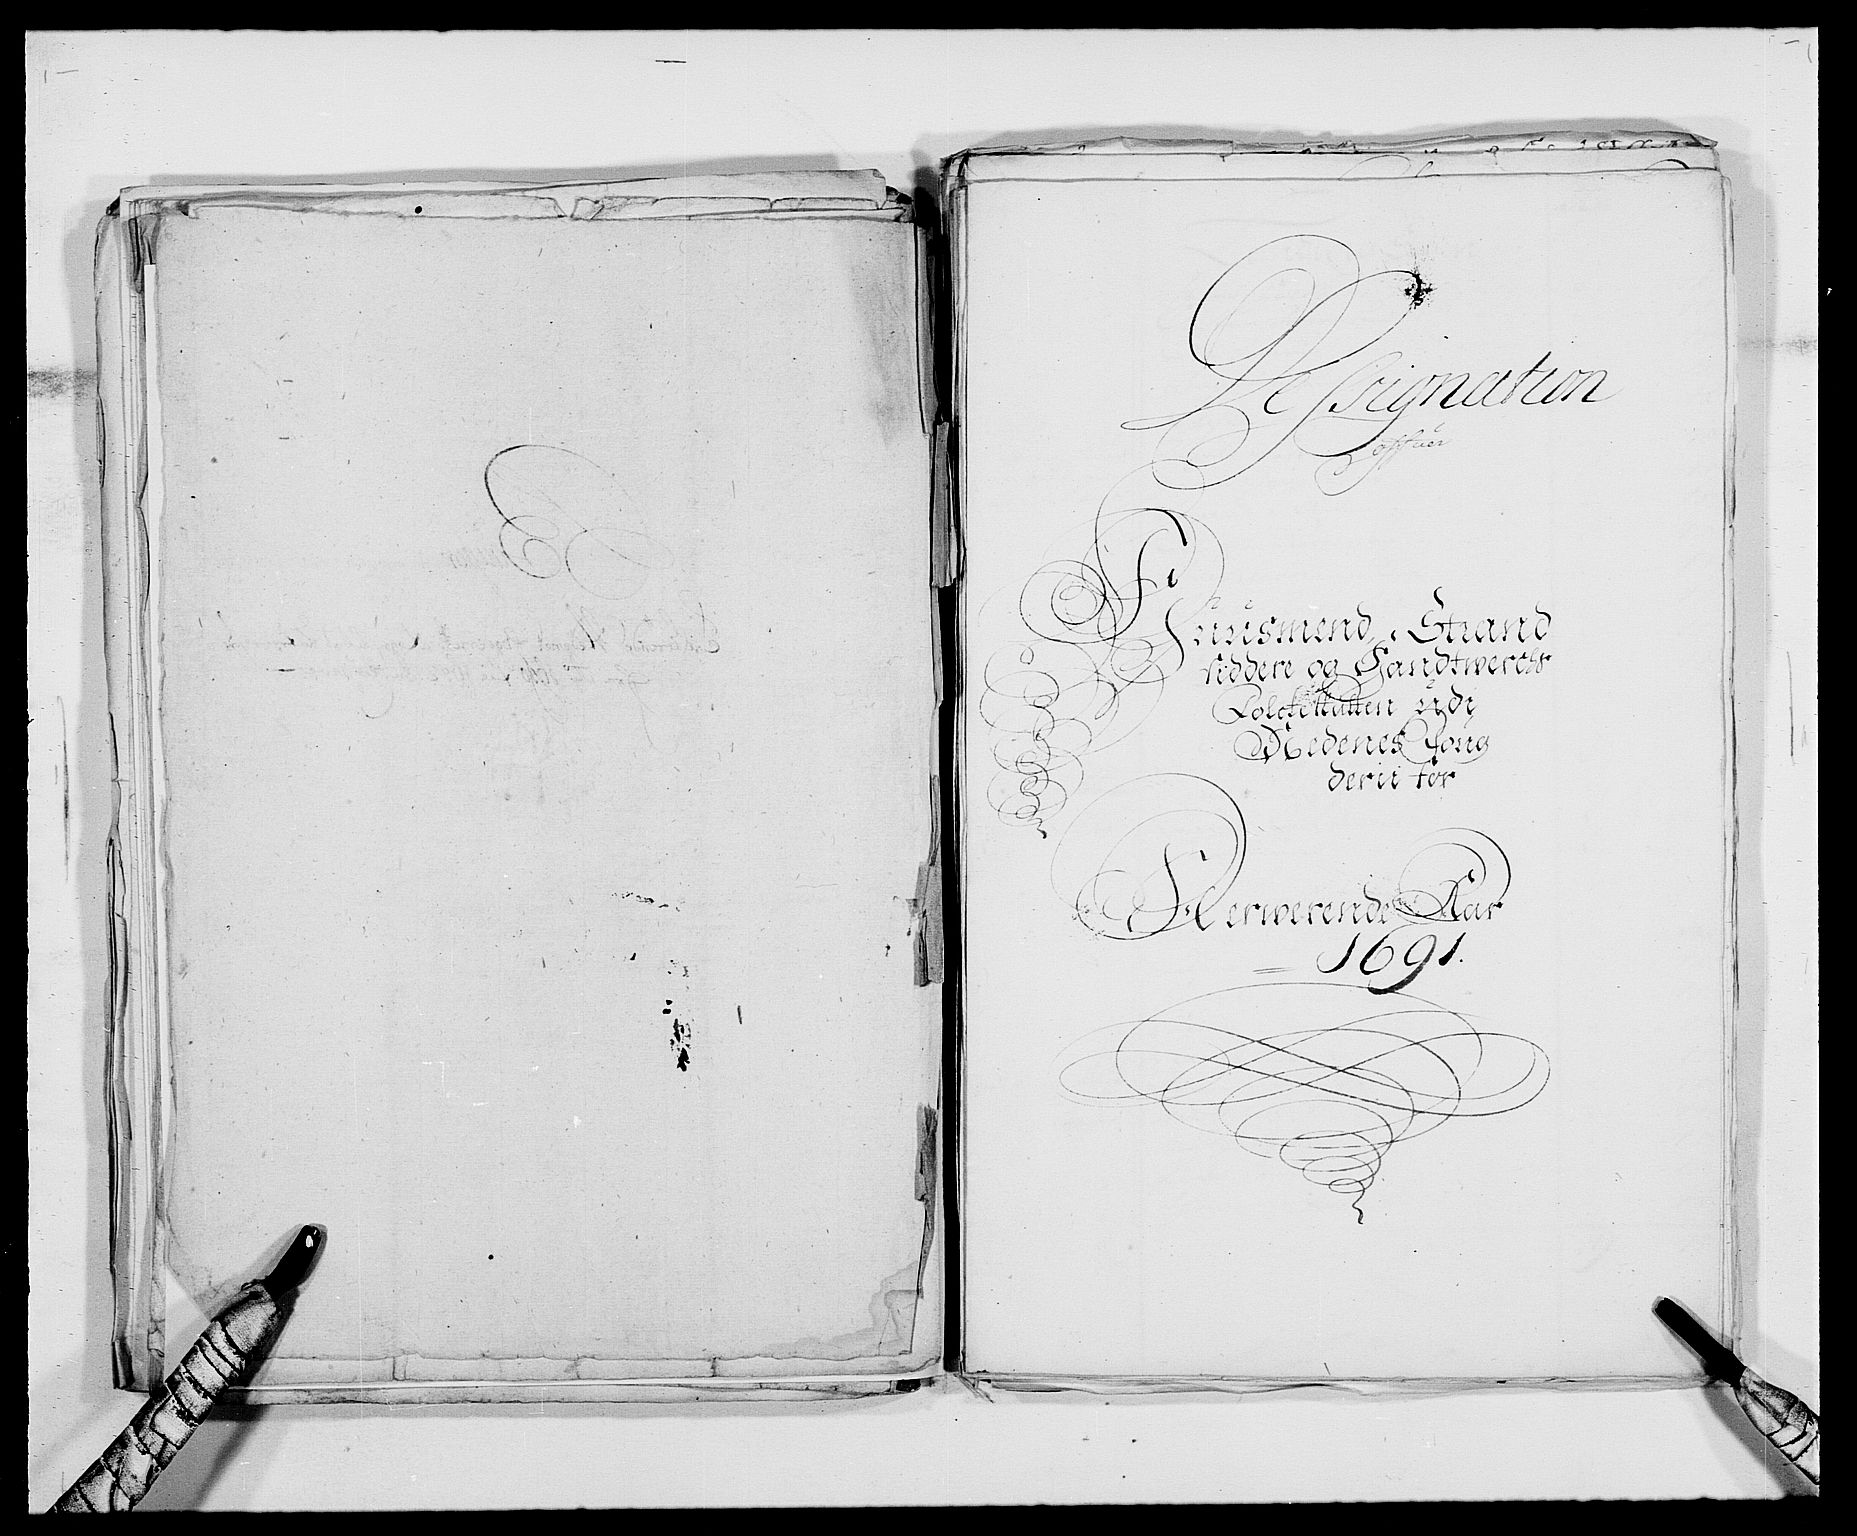 Dessignation
offuer
Huusmend, Strand
siddere og Handtwerchs
Folcke Skatten udi
Nedenes Foug
derii for
Nerwerende Aar
1691.